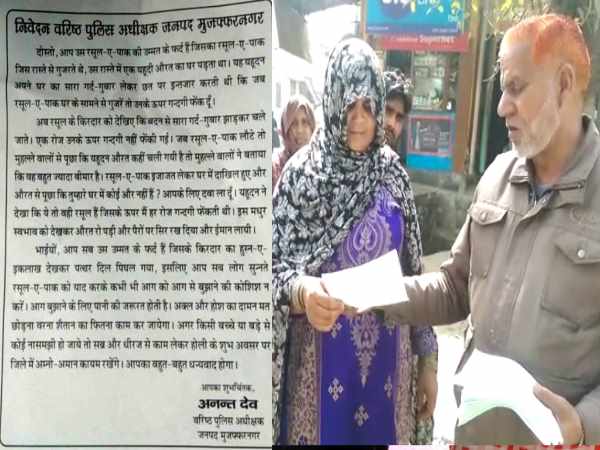 निवेदन वरिष्ठ पुलिस अधीक्षक जनपद मुजफ्फरनगर
दोस्तो, आप उस रसूल-ए-पाक की उम्मत के फर्द हैं जिसका रसूल-ए-पाक
जिस रास्ते से गुजरते थे, उस रास्ते में एक यहूदी औरत का घर पड़ता था। यह यहूदन
अपने घर का सारा गर्द-गुबार लेकर छत पर इन्तजार करती थी कि जब
रसूल-ए-पाक घर के सामने से गुजरें तो उनके ऊपर गन्दगी फेंक दूँ।
अब रसूल के किरदार को देखिए कि बदन से सारा गर्द-गुबार झाड़कर चले
जाते। एक रोज उनके ऊपर गन्दगी नहीं फेंकी गई। जब रसूल-ए-पाक लौटे तो
मुहल्ले वालों से पूछा कि यहूदन औरत कहीं चली गयी है तो मुहल्ले वालों ने बताया
कि वह बहुत ज्यादा बीमार है। रसूल-ए-पाक इजाजत लेकर घर में दाखिल हुए और
औरत से पूछा कि तुम्हारे घर में कोई और नहीं है ? आपके लिए दवा ला दूँ। यहूदन ने
देखा कि ये तो वही रसूल हैं जिनके ऊपर मैं हर रोज गन्दगी फेंकती थी। इस मधुर
स्वभाव को देखकर औरत रो पड़ी और पैरों पर सिर रख दिया और ईमान लायी।
भाईयों, आप सब उस उम्मत के फर्द हैं जिसके किरदार का हुस्न-ए-
इकलाख देखकर पत्थर दिल पिघल गया, इसलिए आप सब लोग सुन्नते
रसूल-ए-पाक को याद करके कभी भी आग को आग से बुझाने की कोशिश न
करें। आग बुझाने के लिए पानी की जरूरत होती है। अक्ल और होश का दामन मत
छोड़ना वरना शैतान का फितना काम कर जायेगा। अगर किसी बच्चे या बड़े से
कोई नासमझी हो जाये तो सब्र और धीरज से काम लेकर होली के शुभ अवसर पर
जिले में अम्नो-अमान कायम रखेंगे। आपका बहुत-बहुत धन्यवाद होगा।
आपका शुभचिंतक,
अनन्त देव
वरिष्ठ पुलिस अधीक्षक
जनपद मुजफ्फरनगर